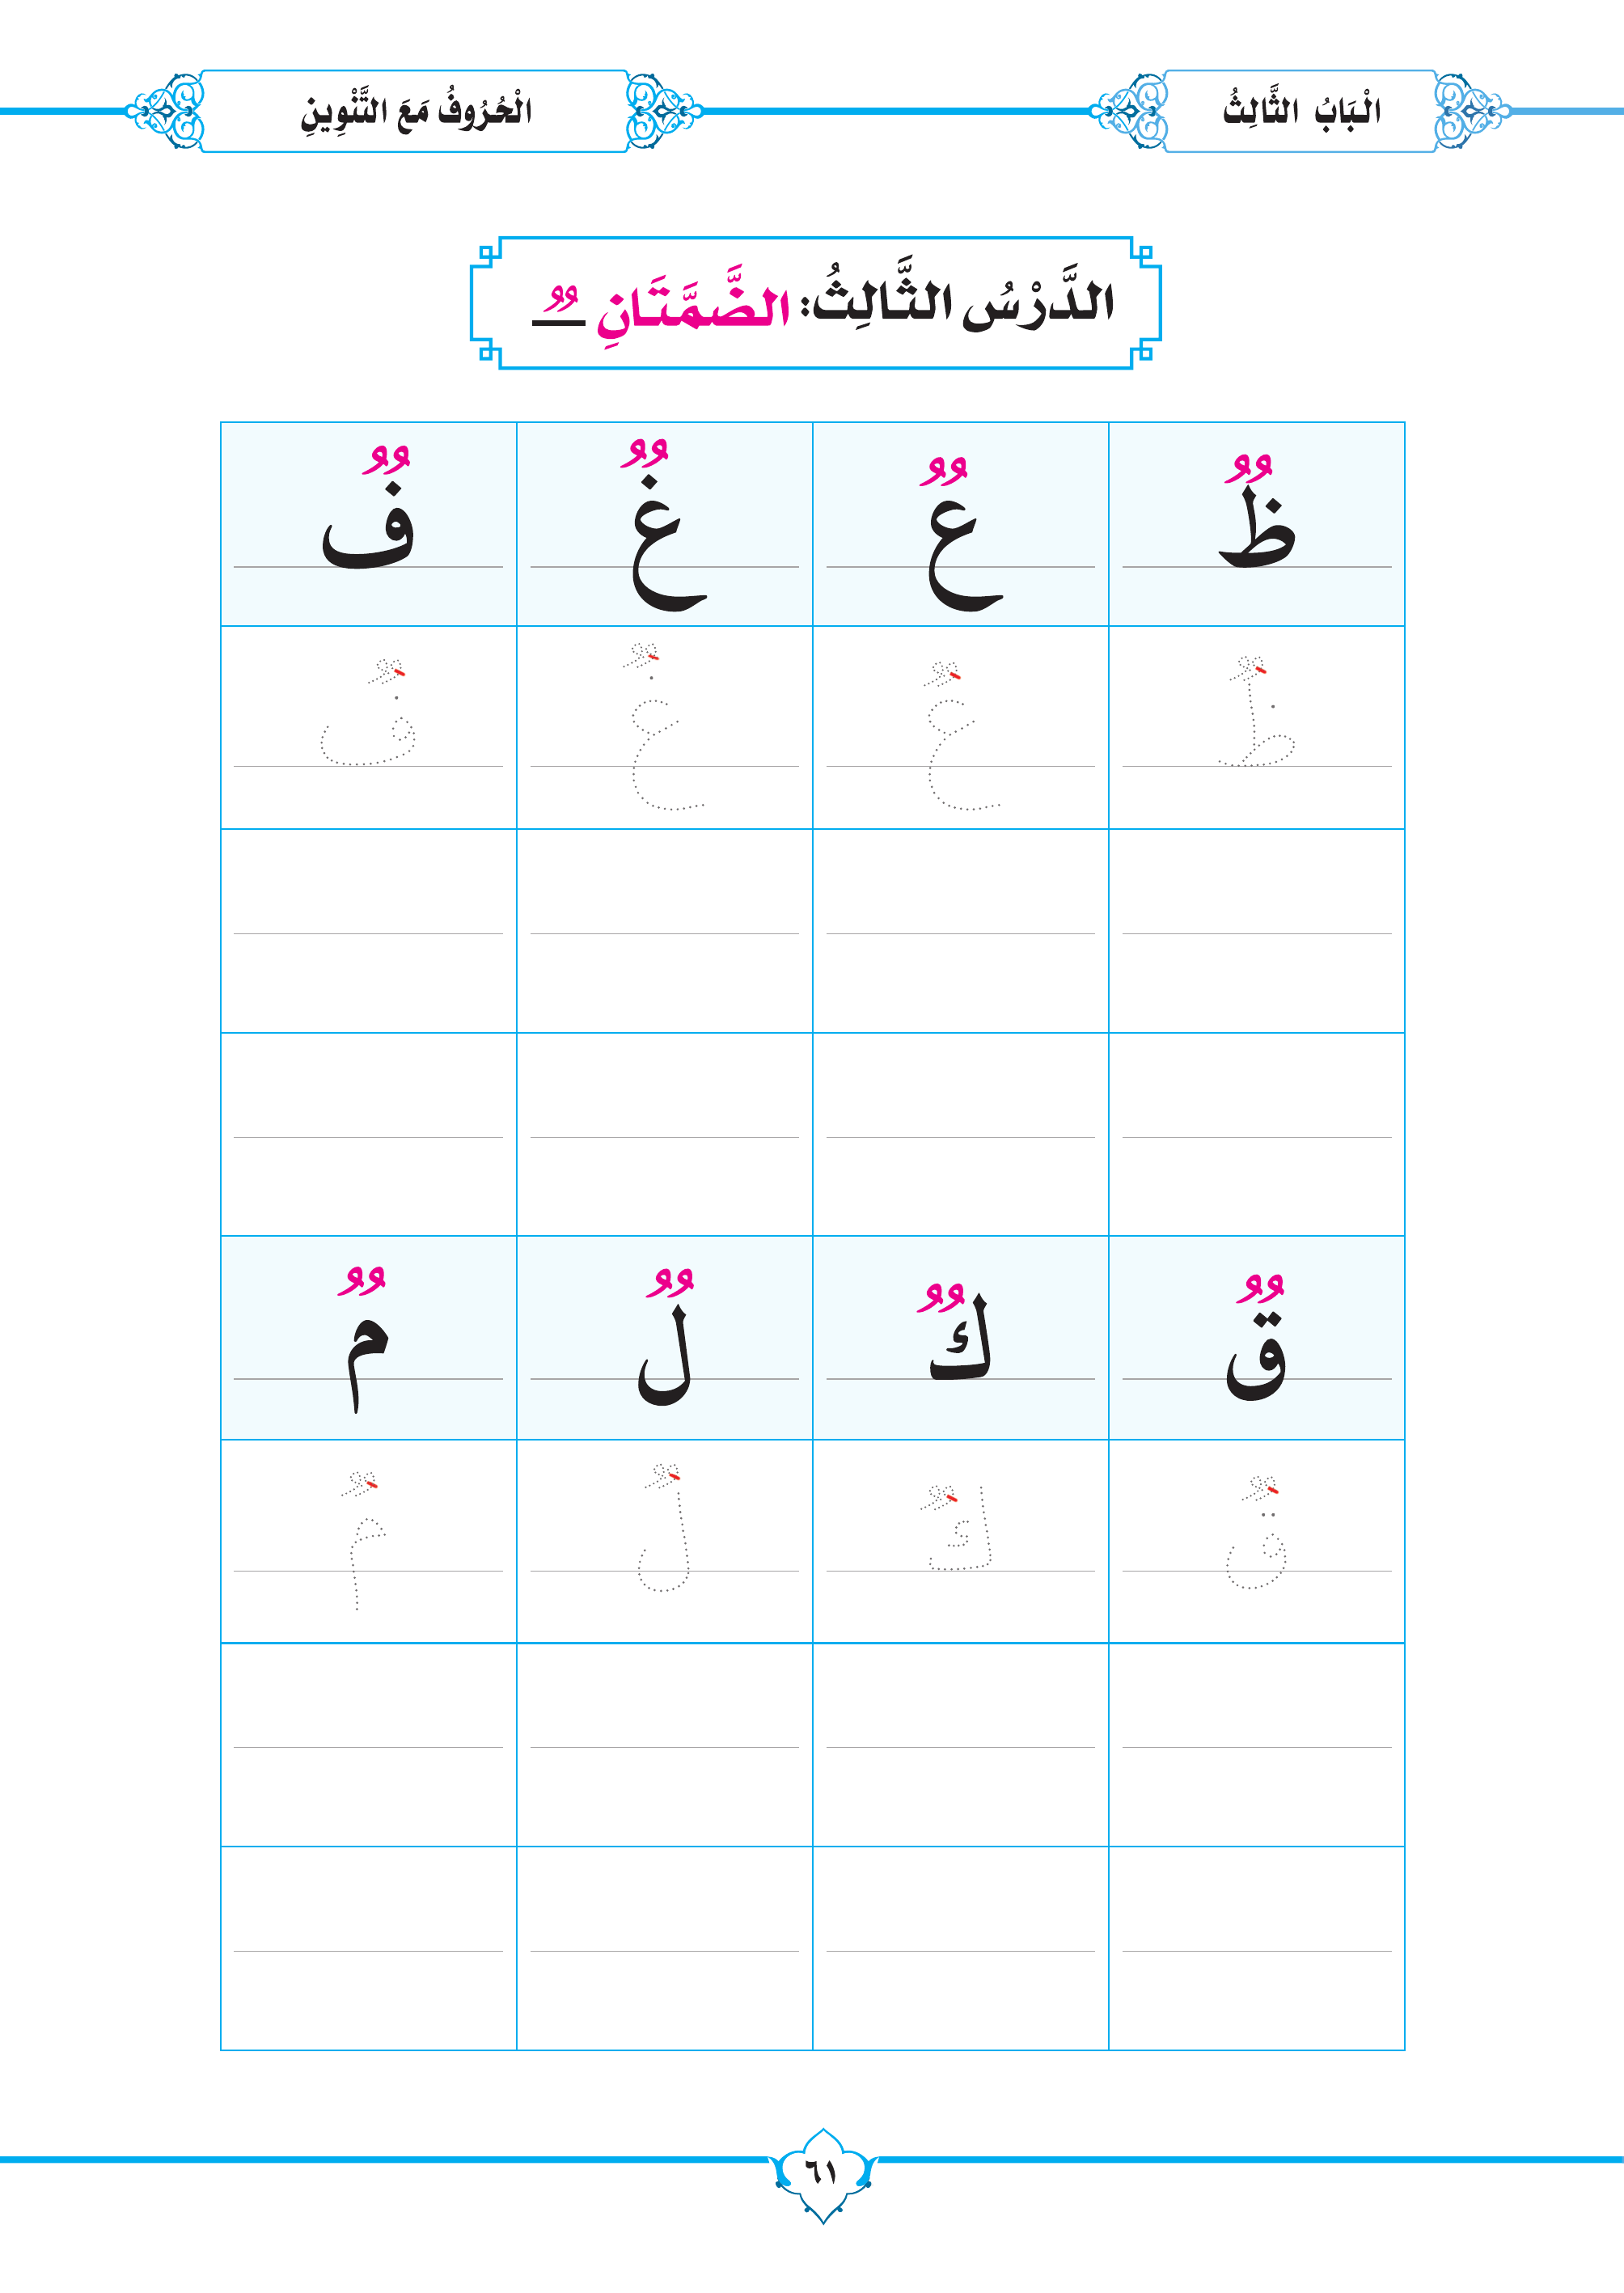 الْبَابُ الثَّالِثُ
الْحُرُوفُ مَعَ التَّنْوِينِ
الدَّرْسُ الثَّالِثُ: الضَّمَّتَانِ ـٌ
ظٌ عٌ غٌ فٌ
ظٌ عٌ غٌ فٌ
قٌ كٌ لٌ مٌ
قٌ كٌ لٌ مٌ
٦١